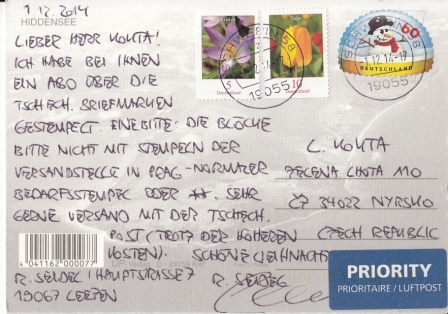 1.12.2014
HIDDENSEE
LIEBER HERR KOUTA!
ICH HABE BEI IHNEN
EIN ABO ÜBER DIE
TSCHECH. BRIEFMARKEN
GESTEMPELT. EINE BITTE: DIE BLÖCKE
BITTE NICHT MIT STEMPELN DER
VERSANDSTELLE IN PRAG - NORMALER
BEDARFSSTEMPEL ODER **. SEHR
GERNE VERSAND MIT DER TSCHECH.
POST (TROTZ DER HÖHEREN
KOSTEN). SCHÖNE WEIHNACHT
R. SEIDEL / HAUPTSTRASSE 7
19067 LEEZEN
4 041162 000077
5
Deutschland
Tulpe
10
Deutschland
SCHWERIN
19055
60
DEUTSCHLAND
1.12.14-17
19055
L. KOUTA
ZELENA LHOTA MO
CZ 34022 NYRSKO
CZECH REPUBLIC
PRIORITY
PRIORITAIRE / LUFTPOST